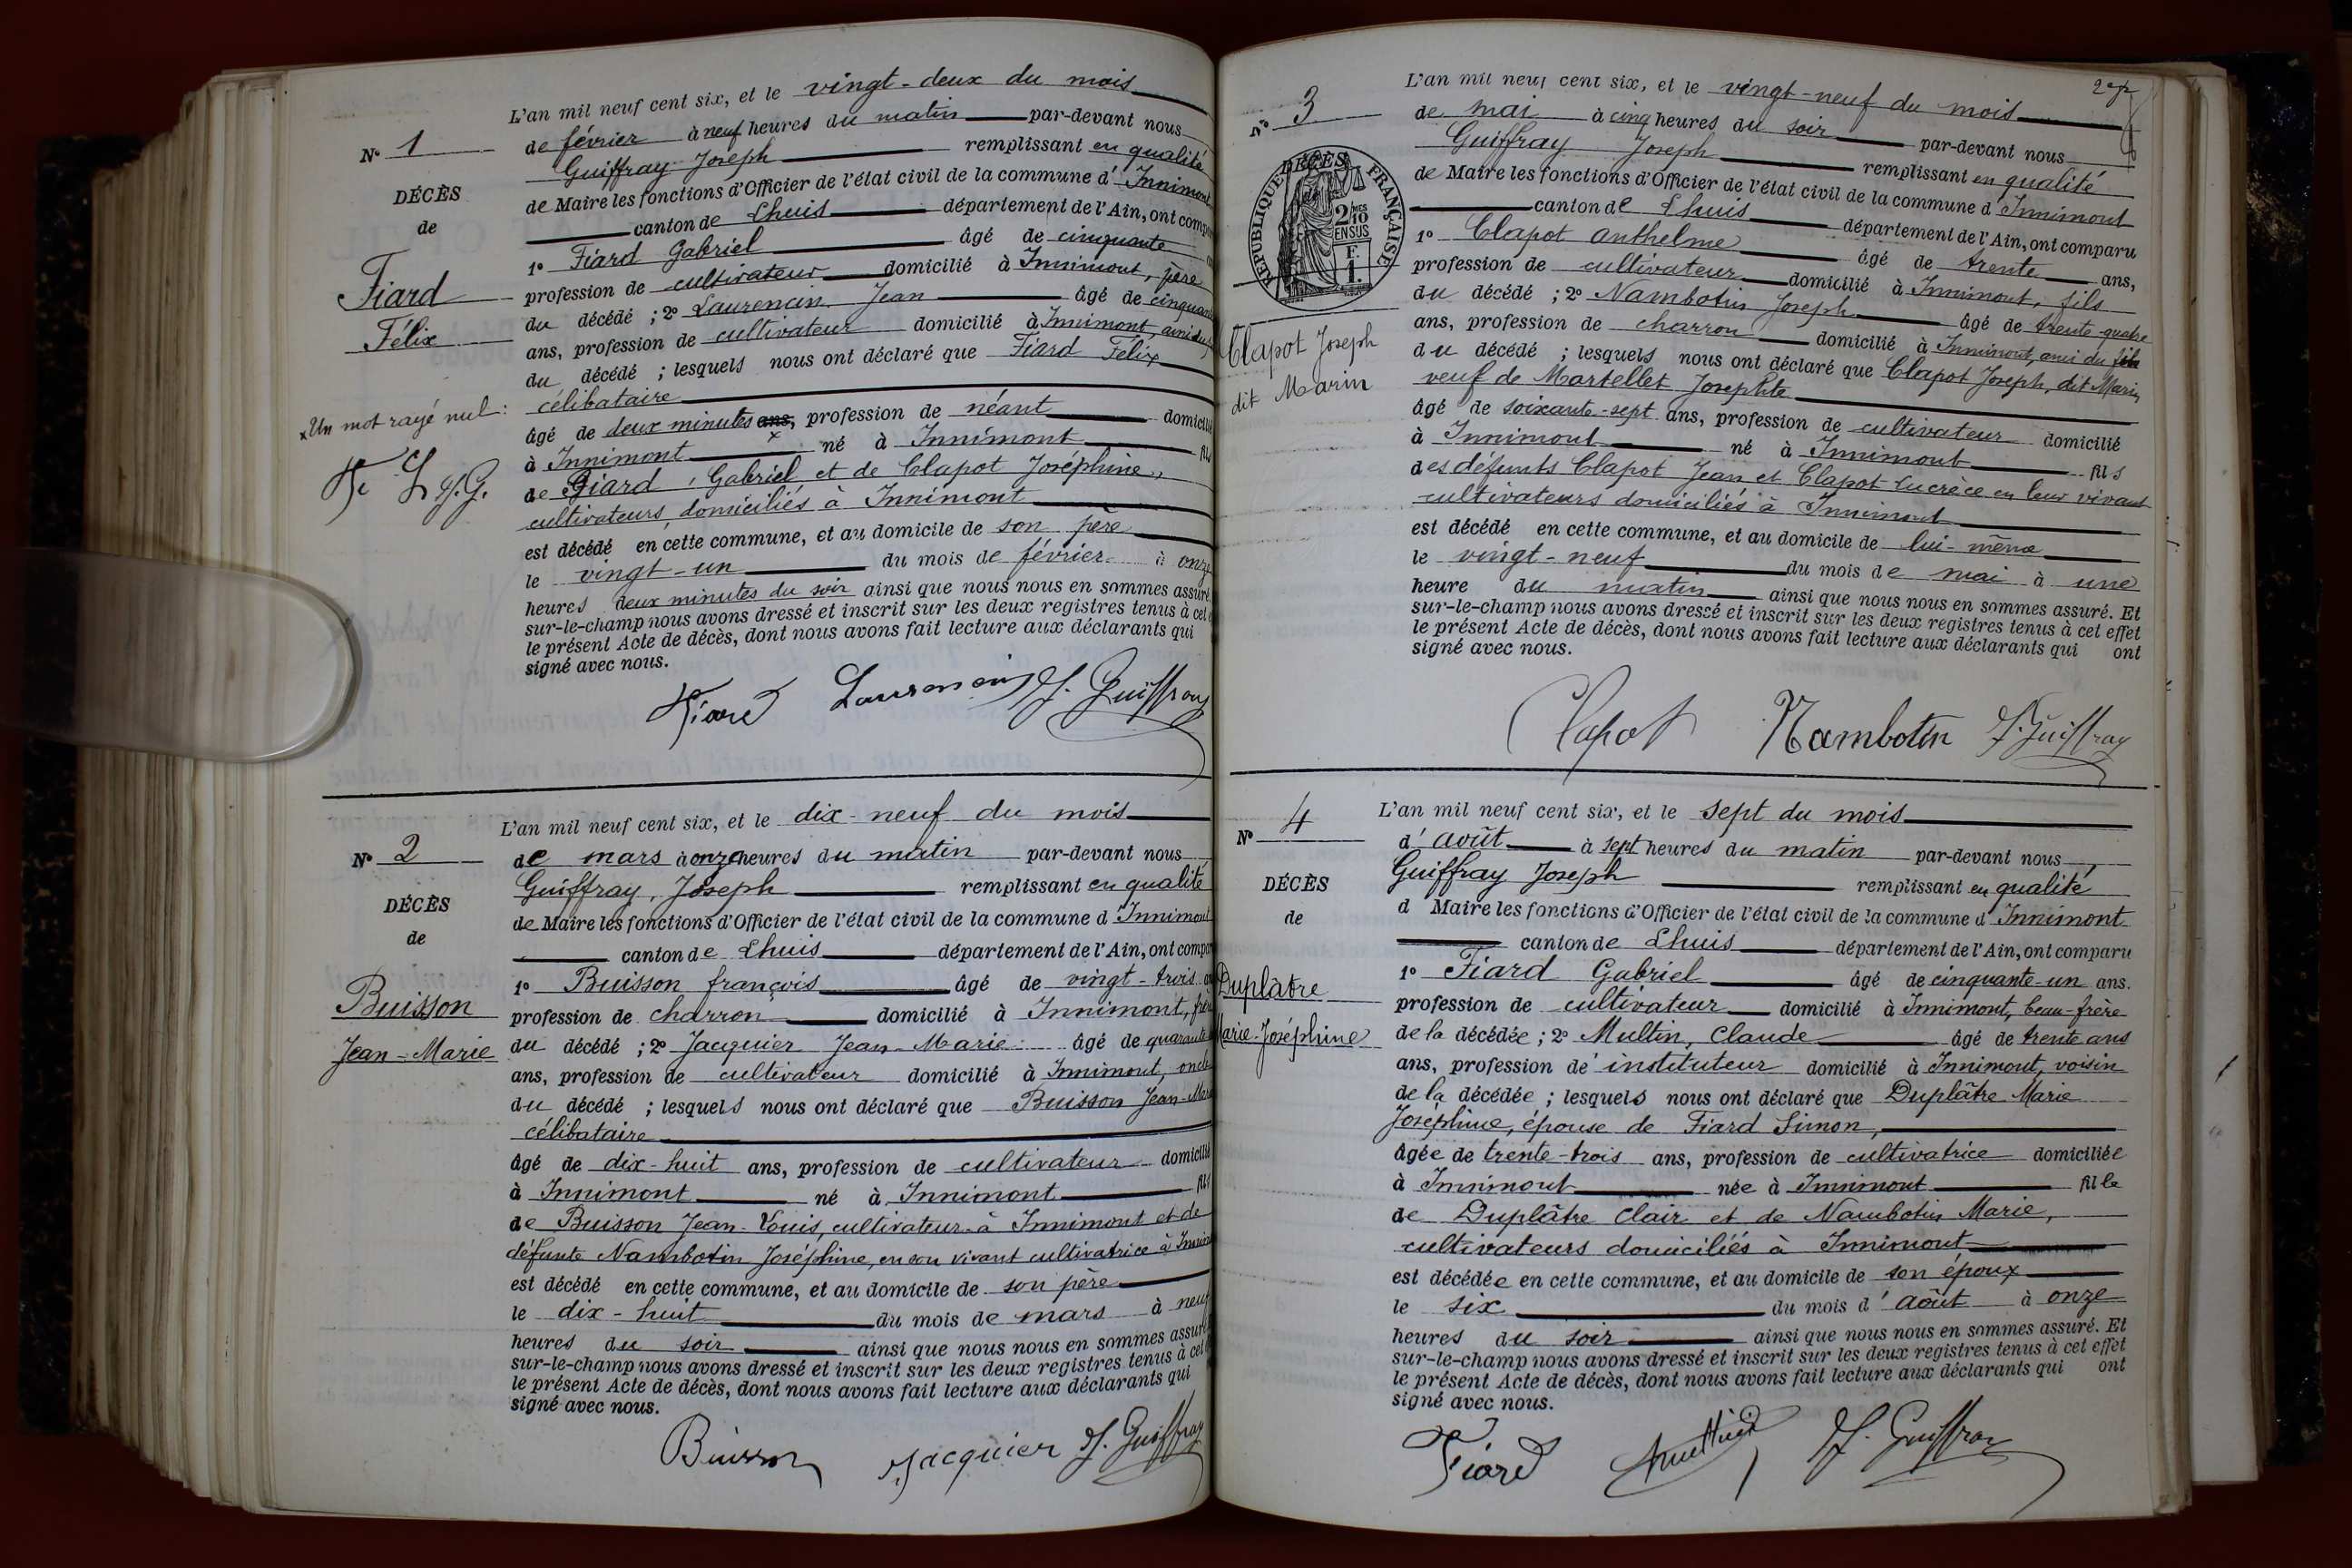 L'an mil neuf cent six, et le vingt-deux du mois
N° 1
de février à neuf heures du matin par-devant nous
Guiffray Joseph remplissant en qualité
DÉCÈS
de Maire les fonctions d'Officier de l'état civil de la commune d' Innimont
de
canton de Lhuis département de l'Ain, ont compa
1° Fiard Gabriel âgé de cinquante
Fiard
profession de cultivateur domicilié à Innimont, père
du décédé ; 2° Laurencin Jean âgé de cinquante
Félix
ans, profession de cultivateur domicilié à Innimont, ami du
du décédé ; lesquels nous ont déclaré que Fiard Félix
célibataire
x Un mot rayé nul :
âgé de deux minutes ans, profession de néant domicilié
à Innimont né à Innimont fils
F. L J.G.
de Fiard, Gabriel, et de Clapot Joséphine,
cultivateurs domiciliés à Innimont
est décédé en cette commune, et au domicile de son père
le vingt-un du mois de février à onze
heures deux minutes du soir ainsi que nous nous en sommes assuré.
sur-le-champ nous avons dressé et inscrit sur les deux registres tenus à cet e
le présent Acte de décès, dont nous avons fait lecture aux déclarants qui
signé avec nous.
Fiard Laurencin J. Guiffray
L'an mil neuf cent six, et le dix-neuf du mois
N° 2
de mars à onze heures du matin par-devant nous
Guiffray, Joseph remplissant en qualité
DÉCÈS
de Maire les fonctions d'Officier de l'état civil de la commune d' Innimont
de
canton de Lhuis département de l'Ain, ont compar
1° Buisson françois âgé de vingt-trois
Buisson
profession de charron domicilié à Innimont, frère
Jean-Marie
du décédé ; 2° Jacquier Jean-Marie âgé de quarante
ans, profession de cultivateur domicilié à Innimont, oncle
du décédé ; lesquels nous ont déclaré que Buisson Jean-Marie
célibataire
âgé de dix-huit ans, profession de cultivateur domicilié
à Innimont né à Innimont fils
de Buisson Jean-Louis, cultivateur à Innimont et de
défunte Nambotin Joséphine, en son vivant cultivatrice à Innim
est décédé en cette commune, et au domicile de son père
le dix-huit du mois de mars à neuf
heures du soir ainsi que nous nous en sommes assuré
sur-le-champ nous avons dressé et inscrit sur les deux registres tenus à cet
le présent Acte de décès, dont nous avons fait lecture aux déclarants qui
signé avec nous.
Buisson Jacquier J. Guiffray
L'an mil neuf cent six, et le vingt-neuf du mois
N° 3
de mai à cinq heures du soir par-devant nous
Guiffray Joseph remplissant en qualité
DÉCÈS
RÉPUBLIQUE FRANÇAISE
2 MES
10
EN SUS
F.
1.
de Maire les fonctions d'Officier de l'état civil de la commune d Innimont
canton de Lhuis département de l'Ain, ont comparu
1° Clapot Anthelme âgé de trente ans,
profession de cultivateur domicilié à Innimont, fils
du décédé ; 2° Nambotin Joseph âgé de trente-quatre
Clapot Joseph
ans, profession de charron domicilié à Innimont, ami du fils
dit Marin
du décédé ; lesquels nous ont déclaré que Clapot Joseph, dit Marin,
veuf de Martellet Josephte
âgé de soixante-sept ans, profession de cultivateur domicilié
à Innimont né à Innimont fils
des défunts Clapot Jean et Clapot Lucrèce en leur vivant
cultivateurs domiciliés à Innimont
est décédé en cette commune, et au domicile de lui-même
le vingt-neuf du mois de mai à une
heure du matin ainsi que nous nous en sommes assuré. Et
sur-le-champ nous avons dressé et inscrit sur les deux registres tenus à cet effet
le présent Acte de décès, dont nous avons fait lecture aux déclarants qui ont
signé avec nous.
Clapot Nambotin J. Guiffray
L'an mil neuf cent six, et le sept du mois
N° 4
d' août à sept heures du matin par-devant nous
Guiffray Joseph remplissant en qualité
DÉCÈS
d Maire les fonctions d'Officier de l'état civil de la commune d' Innimont
de
canton de Lhuis département de l'Ain, ont comparu
1° Fiard Gabriel âgé de cinquante-un ans.
Duplâtre
profession de cultivateur domicilié à Innimont, beau-frère
Marie-Joséphine
de la décédée ; 2° Multin, Claude âgé de trente ans
ans, profession d' instituteur domicilié à Innimont, voisin
de la décédée ; lesquels nous ont déclaré que Duplâtre Marie
Joséphine, épouse de Fiard Simon,
âgée de trente-trois ans, profession de cultivatrice domiciliée
à Innimont née à Innimont fille
de Duplâtre Clair et de Nambotin Marie,
cultivateurs domiciliés à Innimont
est décédée en cette commune, et au domicile de son époux
le six du mois d' août à onze
heures du soir ainsi que nous nous en sommes assuré. Et
sur-le-champ nous avons dressé et inscrit sur les deux registres tenus à cet effet
le présent Acte de décès, dont nous avons fait lecture aux déclarants qui ont
signé avec nous.
Fiard Multin J. Guiffray